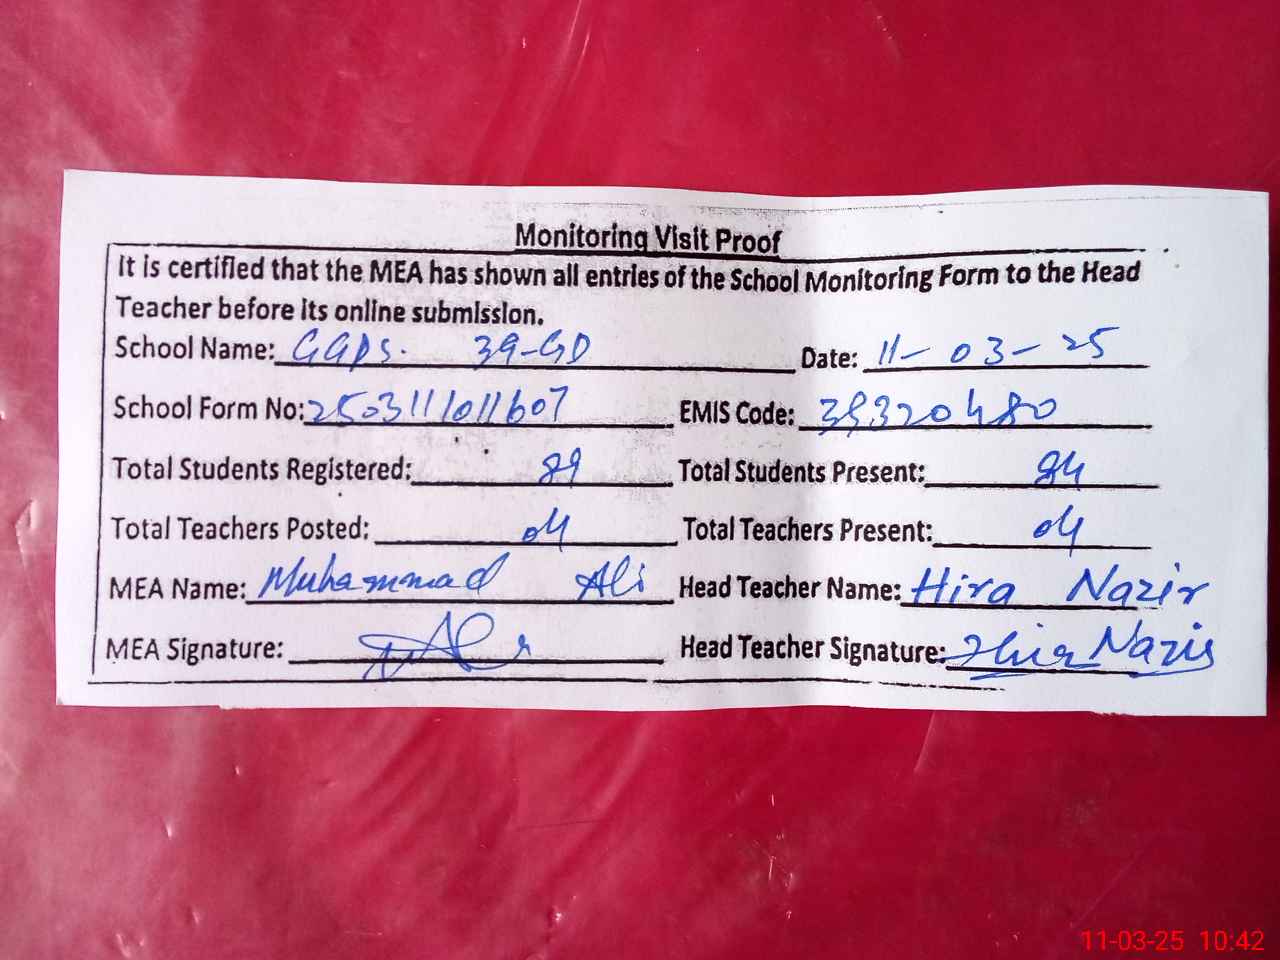 Monitoring Visit Proof
It is certified that the MEA has shown all entries of the School Monitoring Form to the Head
Teacher before its online submission.
School Name: GGPS. 39-GD Date: 11-03-25
School Form No: 2503111011607 EMIS Code: 39320480
Total Students Registered: 89 Total Students Present: 84
Total Teachers Posted: 04 Total Teachers Present: 04
MEA Name: Muhammad Ali Head Teacher Name: Hira Nazir
MEA Signature: Head Teacher Signature: Hira Nazir
11-03-25 10:42